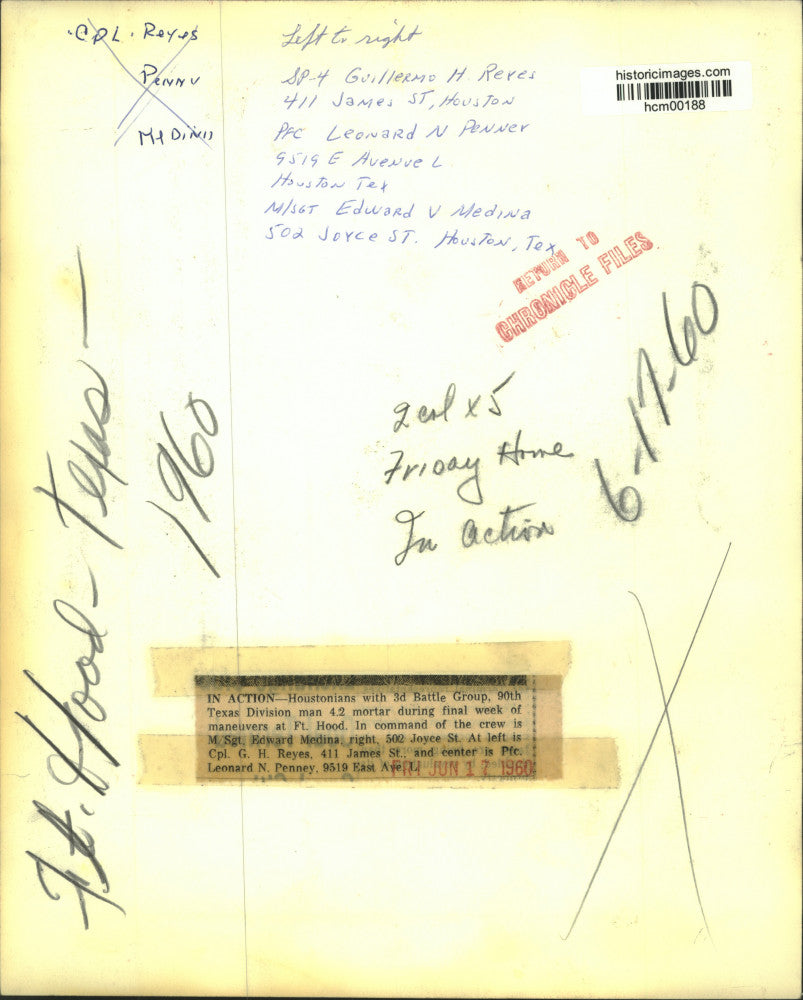 CPL. Reyes
Penny
Medina
Left to right
SP-4 Guillermo H. Reyes
411 James ST, Houston
PFC Leonard N Penney
9519 E Avenue L
Houston Tex
M/SGT Edward V Medina
502 Joyce ST. Houston, Tex
historicimages.com
hcm00188
RETURN TO
CHRONICLE FILES
6-17-60
2 col x 5
Friday Home
In action
Ft. Hood - Texas -
1960
IN ACTION—Houstonians with 3d Battle Group, 90th
Texas Division man 4.2 mortar during final week of
maneuvers at Ft. Hood. In command of the crew is
M/Sgt. Edward Medina, right, 502 Joyce St. At left is
Cpl. G. H. Reyes, 411 James St., and center is Pfc.
Leonard N. Penney, 9519 East Ave. L.
FRI JUN 17 1960